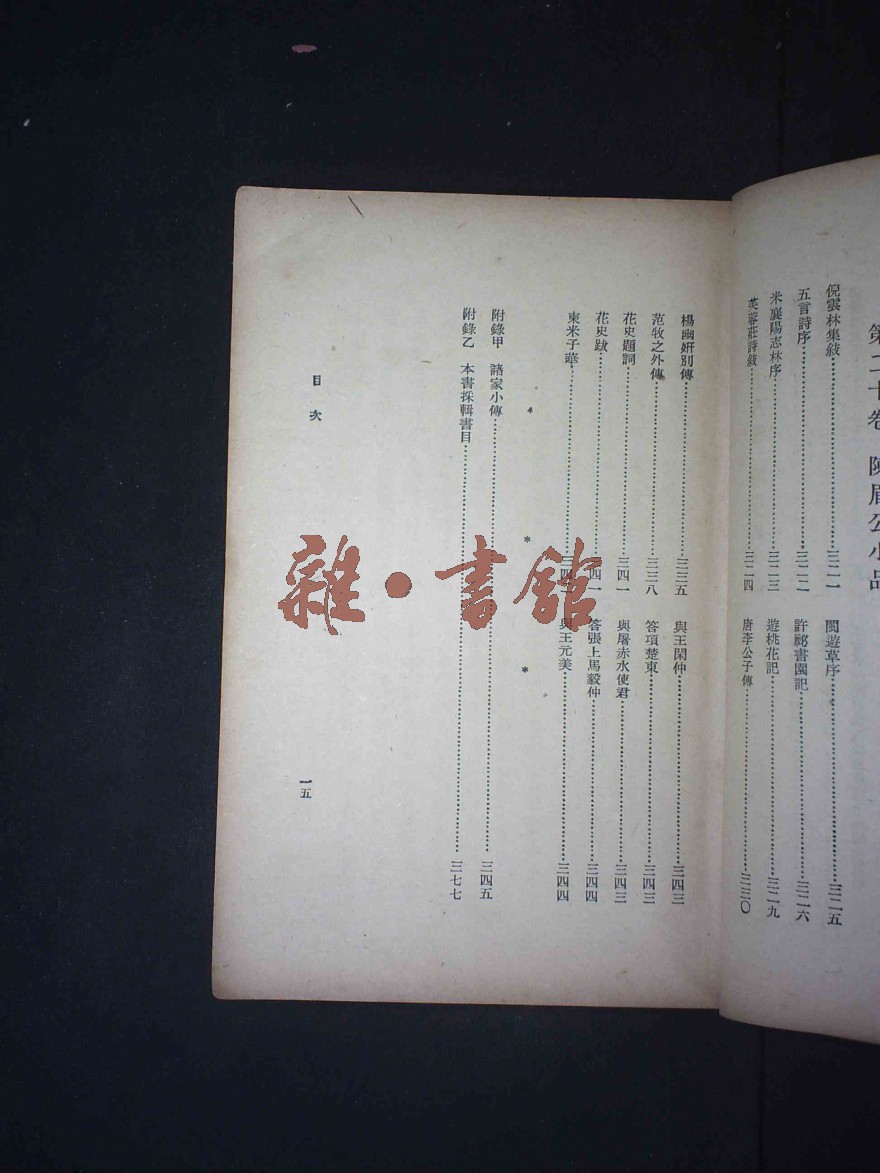 第二十卷 陳眉公小品
倪雲林集敍 三二一 閩遊草序 三二五
五言詩序 三二二 許祕書園記 三二六
米襄陽志林序 三二三 遊桃花記 三二九
芙蓉莊詩敍 三二四 唐李公子傳 三三〇
楊幽妍別傳 三三五 與王閑仲 三四三
范牧之外傳 三三八 答項楚東 三四三
花史題詞 三四一 與屠赤水使君 三四三
花史跋 四一 答張上馬毅仲 三四四
柬米子華 三四 與王元美 三四四
* * *
附錄甲 諸家小傳 三四五
附錄乙 本書採輯書目 三七七
目次
一五
雜·書館